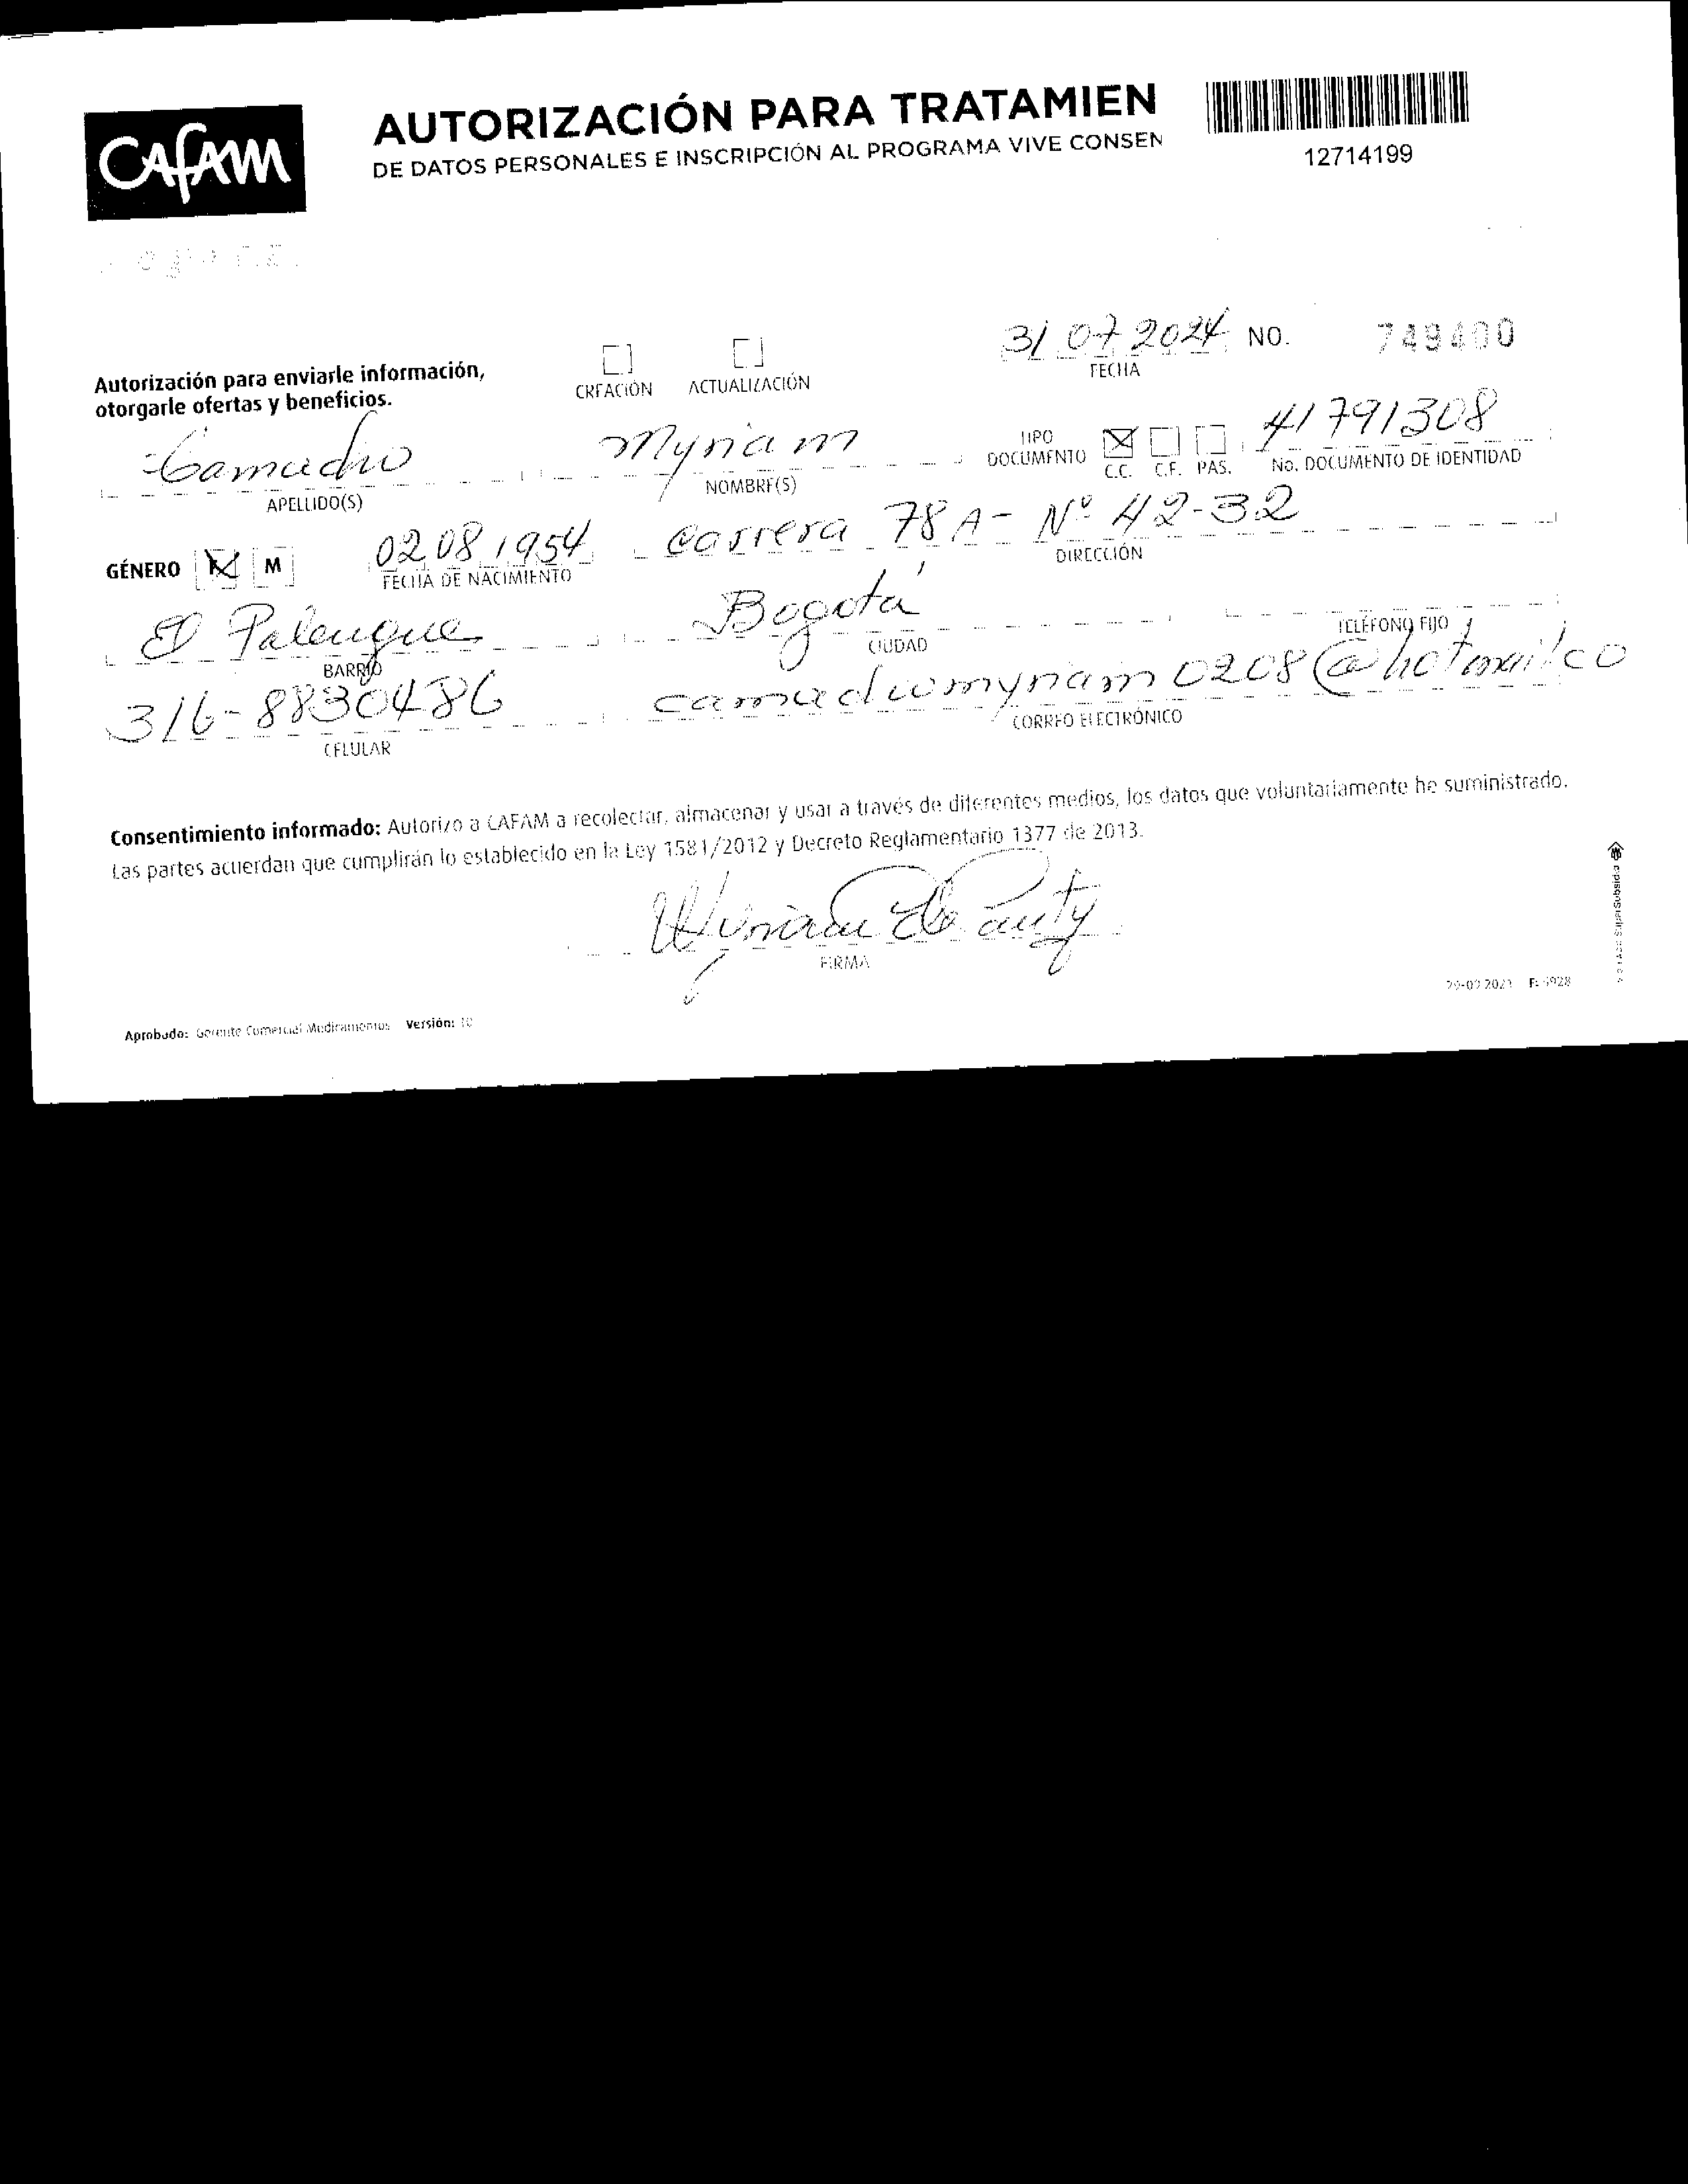 CAFAM
AUTORIZACIÓN PARA TRATAMIEN
DE DATOS PERSONALES E INSCRIPCIÓN AL PROGRAMA VIVE CONSEN
12714199
Autorización para enviarle información,
otorgarle ofertas y beneficios.
CREACIÓN ACTUALIZACIÓN
31 07 2024 NO. 749400
FECHA
Camacho Myriam TIPO DOCUMENTO C.C. C.E. PAS. 41791308
APELLIDO(S) NOMBRE(S) No. DOCUMENTO DE IDENTIDAD
GÉNERO F M 02 08 1954 Carrera 78 A - Nº 42-32
FECHA DE NACIMIENTO DIRECCIÓN
El Palenque Bogotá
BARRIO CIUDAD TELÉFONO FIJO
316-8830486 camachomyriam0208@hotmail.co
CELULAR CORREO ELECTRÓNICO
Consentimiento informado: Autorizo a CAFAM a recolectar, almacenar y usar a través de diferentes medios, los datos que voluntariamente he suministrado.
Las partes acuerdan que cumplirán lo establecido en la Ley 1581/2012 y Decreto Reglamentario 1377 de 2013.
Myriam
FIRMA
Aprobado: Gerente Comercial Medicamentos Versión: 10